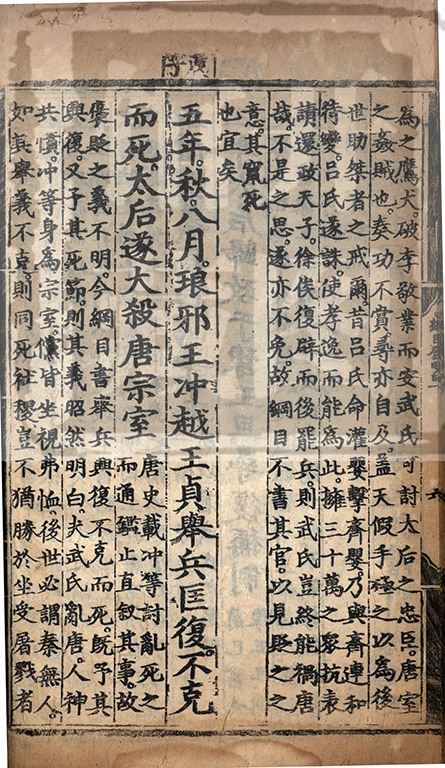 為之鷹犬破李敬業而安武氏可討太后之忠臣唐室
之姦賊也奏功不賞尋亦自及蓋天假手殛之以為後
世助桀者之戒爾昔呂氏命灌嬰擊齊嬰乃與齊連和
待變呂氏遂誅使孝逸而能為此擁三十萬之眾抗表
請還政天子徐俟復辟而後罷兵則武氏豈終能禍唐
哉不是之思遂亦不免故綱目不書其官以見貶之之
意其竄死
也宜矣
五年。秋。八月。琅邪王冲越王貞舉兵匡復。不克
而死。太后遂大殺唐宗室
唐史載冲等討亂死之
而通鑑止直叙其事。故
褒貶之義不明。今綱目書舉兵興復不克而死。旣予其
興復。又予其死節。則其義昭然明白。夫武氏亂唐。人神
共憤。冲等身為宗室。儻皆坐視弗恤後世必謂秦無人。
如其舉義不克。則同死社稷。豈不猶勝於坐受屠戮者